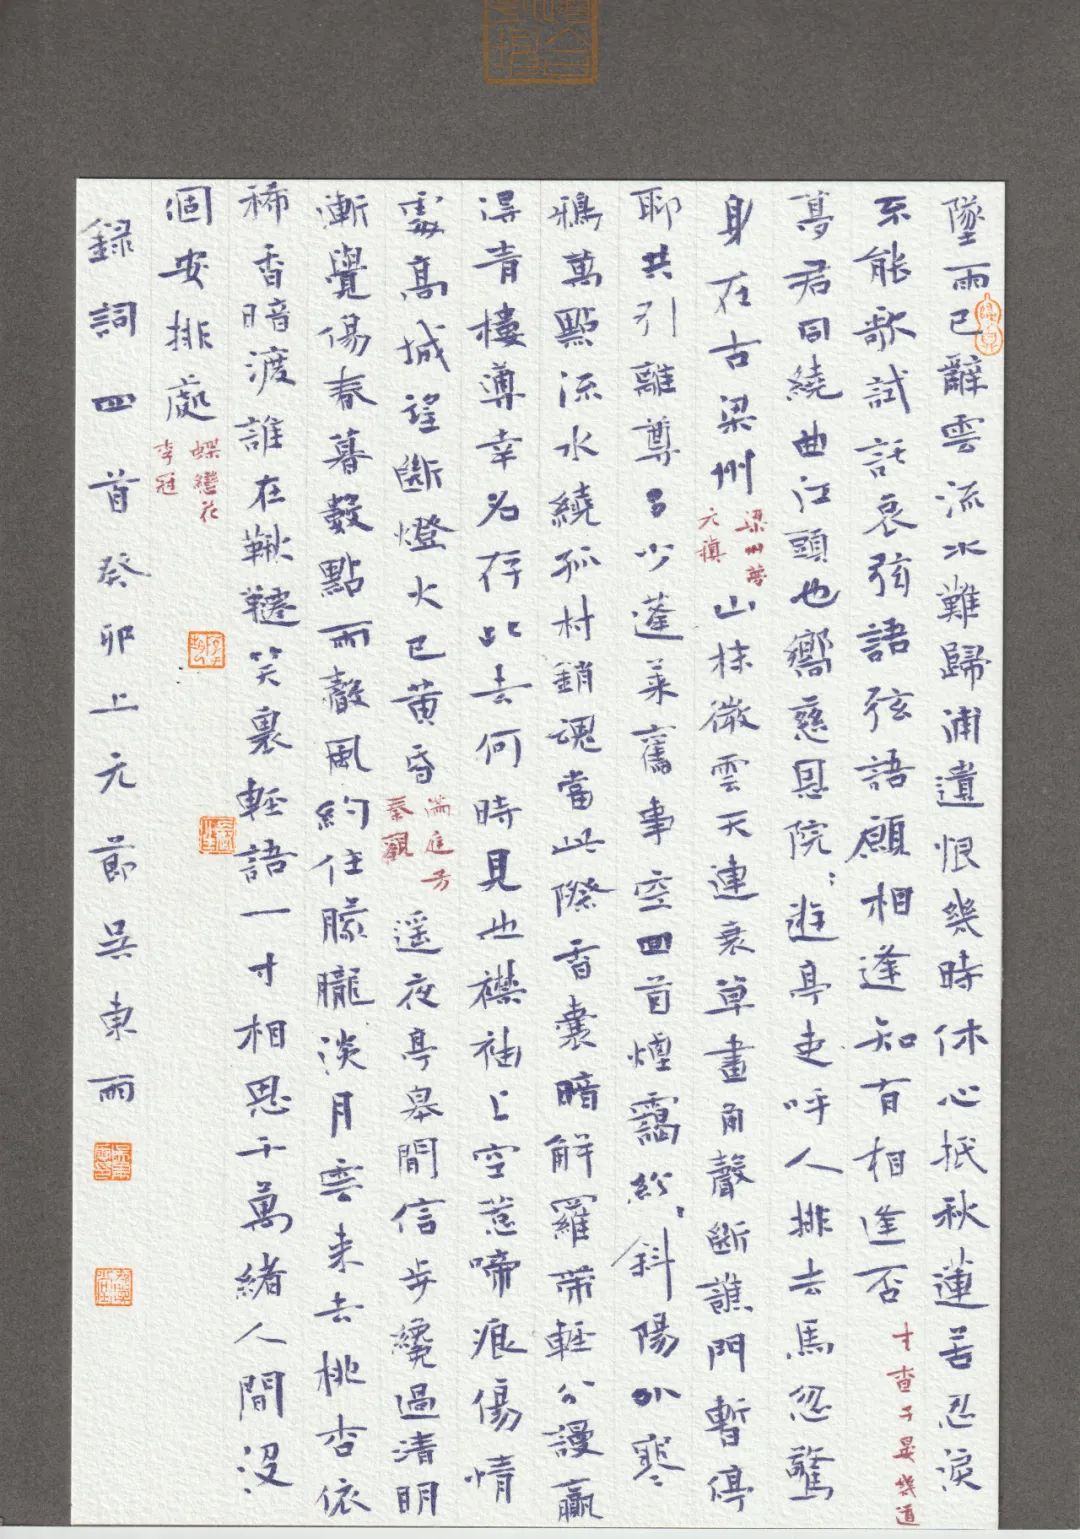 墜雨已辭雲流水難歸浦遺恨幾時休心抵秋蓮苦忍淚
不能歌試託哀弦語弦語願相逢知有相逢否
生查子晏幾道
夢君同繞曲江頭也嚮慈恩院:遊亭吏呼人排去馬忽驚
身在古梁州
梁州夢
元稹
山抹微雲天連衰草畫角聲斷譙門暫停
聊共引離尊多少蓬萊舊事空回首煙靄紛:斜陽外寒
鴉萬點流水繞孤村銷魂當此際香囊暗解羅帶輕分謾贏
得青樓薄幸名存此去何時見也襟袖上空惹啼痕傷情
處高城望斷燈火已黄昏
滿庭芳
秦觀
遥夜亭皋閒信步纔過清明
漸覺傷春暮數點雨聲風約住朦朧淡月雲来去桃杏依
稀香暗渡誰在鞦韆笑裏輕語一寸相思千萬緒人間没
個安排處
蝶戀花
李冠
録詞四首癸卯上元節吳東雨